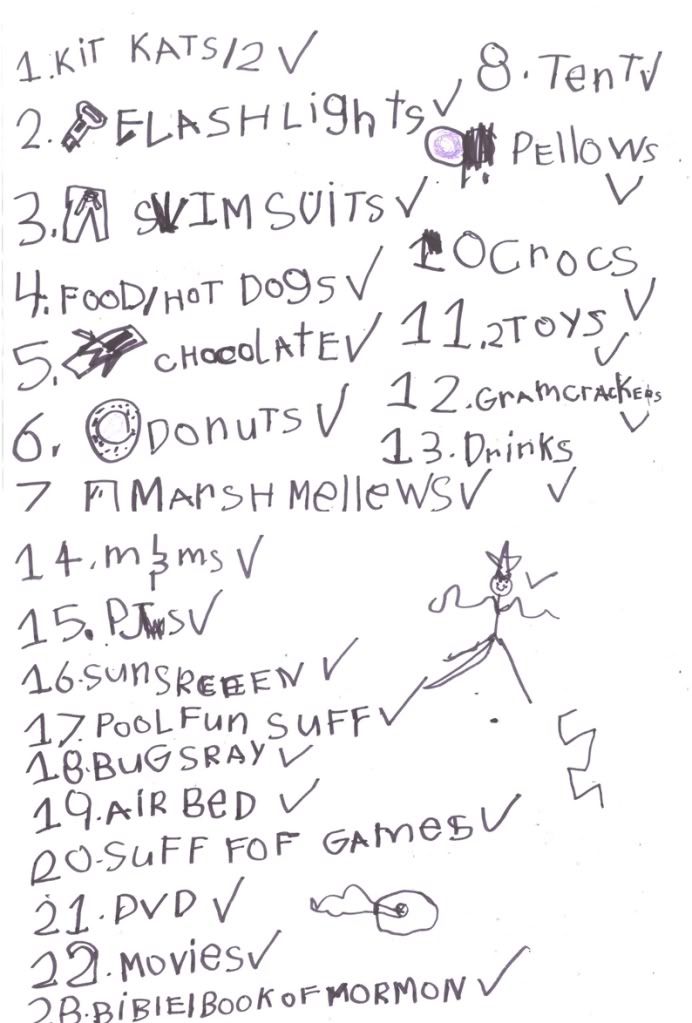 1.KiT KATS/2 ✓
2. FLASHLights ✓
3. SWIM SUITS ✓
4. FOOD/HOT DOgS ✓
5. CHOCOLATE ✓
6. DONUTS ✓
7 MArSH MelleWS ✓
8. TenT ✓
PelloWs ✓
10 Crocs ✓
11. 2TOYS ✓
12. GramcrackeRs ✓
13. Drinks ✓
14. m & ms ✓
15. PJs ✓
16. sunSREEEN ✓
17. POOL Fun SUFF ✓
18. BUGSRAY ✓
19. AIR BeD ✓
20. SUFF FOF GAMES ✓
21. DVD ✓
22. MOVIeS ✓
23. BIBIEIBOOK OF MORMON ✓